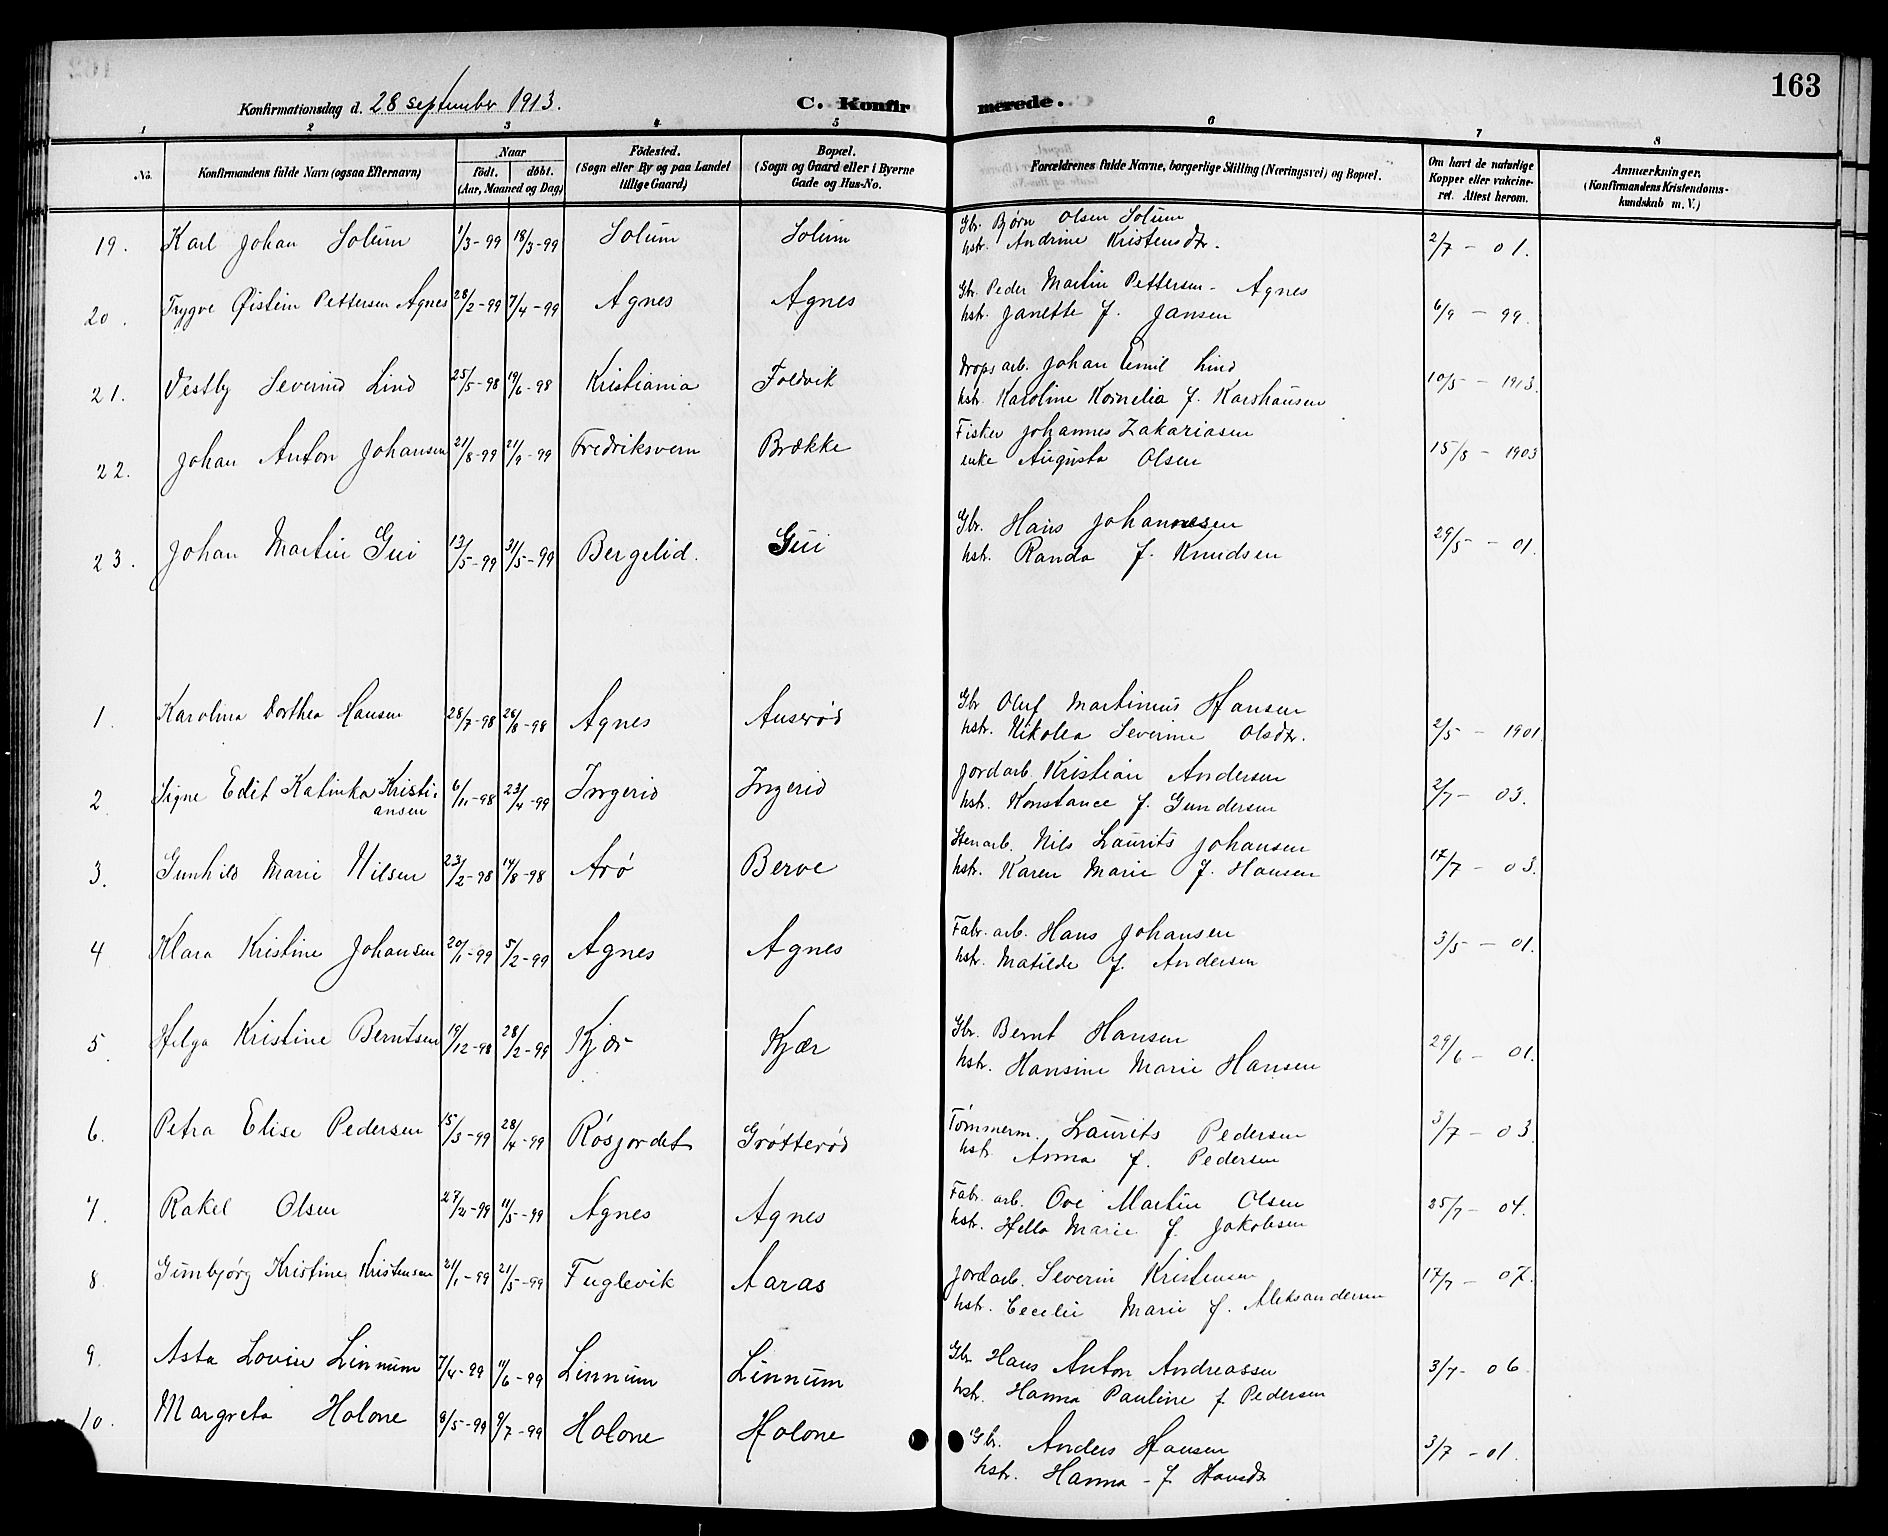 163
Konfirmationsdag d. 28 september 1913.
C. Konfirmerede.
1 2 3 4 5 6 7 8
No. Konfirmandens fulde Navn (ogsaa Efternavn) Naar födt. döbt. (Aar, Maaned og Dag) Födested. (Sogn eller By og paa Landet tillige Gaard) Bopæl. (Sogn og Gaard eller i Byerne Gade og Hus-No. Forældrenes fulde Navne, borgerlige Stilling (Næringsvei) og Bopæl. Om havt de naturlige Kopper eller vakcineret. Attest herom. Anmærkninger. (Konfirmandens Kristendomskundskab m. V.)
19. Karl Johan Solum 1/3-99 18/3-99 Solum Solum Gbr. Bjørn Olsen Solum 2/7 - 01.
hstr. Andrine Kristensdtr.
20. Trygve Øistein Pettersen Agnes 28/2-99 7/4-99 Agnes Agnes Gbr. Peder Martin Pettersen - Agnes 6/9 - 99.
hstr. Janette f. Jansen
21. Vestby Severind Lind 25/5-98 19/6-98 Kristiania Foldvik Drops arb. Johan Emil Lind 10/5 - 1913.
hstr. Karoline Kornelia f. Karshausen
22. Johan Anton Johansen 21/8-99 21/9-99 Fredriksvern Brække Fisker Johannes Zakariasen 15/8 - 1903
enke Augusta Olsen
23. Johan Martin Gui 13/5-99 31/5-99 Bergelid. Gui Gbr. Hans Johannesen 29/5 - 01.
hstr. Randa f. Knudsen
1. Karolina Dorthea Hansen 28/7-98 26/8-98 Agnes Auserød Gbr Oluf Martinius Hansen 2/5 - 1901.
hstr. Nikolea Severine Olsdtr.
2. Signe Edit Katinka Kristiansen 6/11-98 23/4-99 Ingerid Ingerid Jordarb. Kristian Andersen 2/7 - 03.
hstr. Konstance f. Gundersen
3. Gunhild Marie Nilsen 23/2-98 14/8-98 Arø Berve Stenarb. Nils Laurits Johansen 17/7 - 03.
hstr. Karen Marie f. Hansen
4. Klara Kristine Johansen 20/1-99 5/2-99 Agnes Agnes Fabr. arb. Hans Johansen 3/5 - 01.
hstr. Matilde f. Andersen
5. Helga Kristine Berntsen 19/12-98 28/2-99 Kjær Kjær Gbr. Bernt Hansen 29/6 - 01.
hstr. Hansine Marie Hansen
6. Petra Elise Pedersen 15/3-99 28/4-99 Røsjordet Grøtterød Tømmerm. Laurits Pedersen 3/7 - 03.
hstr. Anna f. Pedersen
7. Rakel Olsen 27/2-99 11/5-99 Agnes Agnes Fabr. arb. Ove Martin Olsen 25/7 - 04.
hstr. Hella Marie f. Jakobsen
8. Gunbjørg Kristine Kristensen 21/1-99 21/5-99 Fuglevik Aaras Jordarb. Severin Kristensen 17/7 - 07.
hstr. Cecelie Marie f. Aleksandersen
9. Asta Lovise Linnum 7/4-99 11/6-99 Linnum Linnum Gbr. Hans Anton Andreassen 3/7 - 06.
hstr. Hanna Pauline f. Pedersen
10. Margreta Holone 9/5-99 9/7-99 Holone Holone Gbr. Anders Hansen 3/7 - 01.
hstr. Hanna - f. Hansdtr